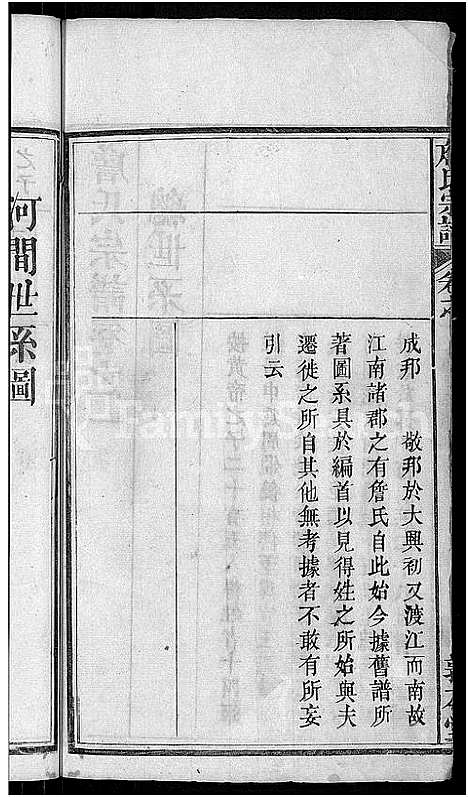 詹氏宗譜
成邦 敬邦於大興初又渡江而南故
江南諸郡之有詹氏自此始今據舊譜所
著圖系具於編首以見得姓之所始與夫
遷徙之所自其他無考據者不敢有所妄
引云
河間世系圖
FamilySearch